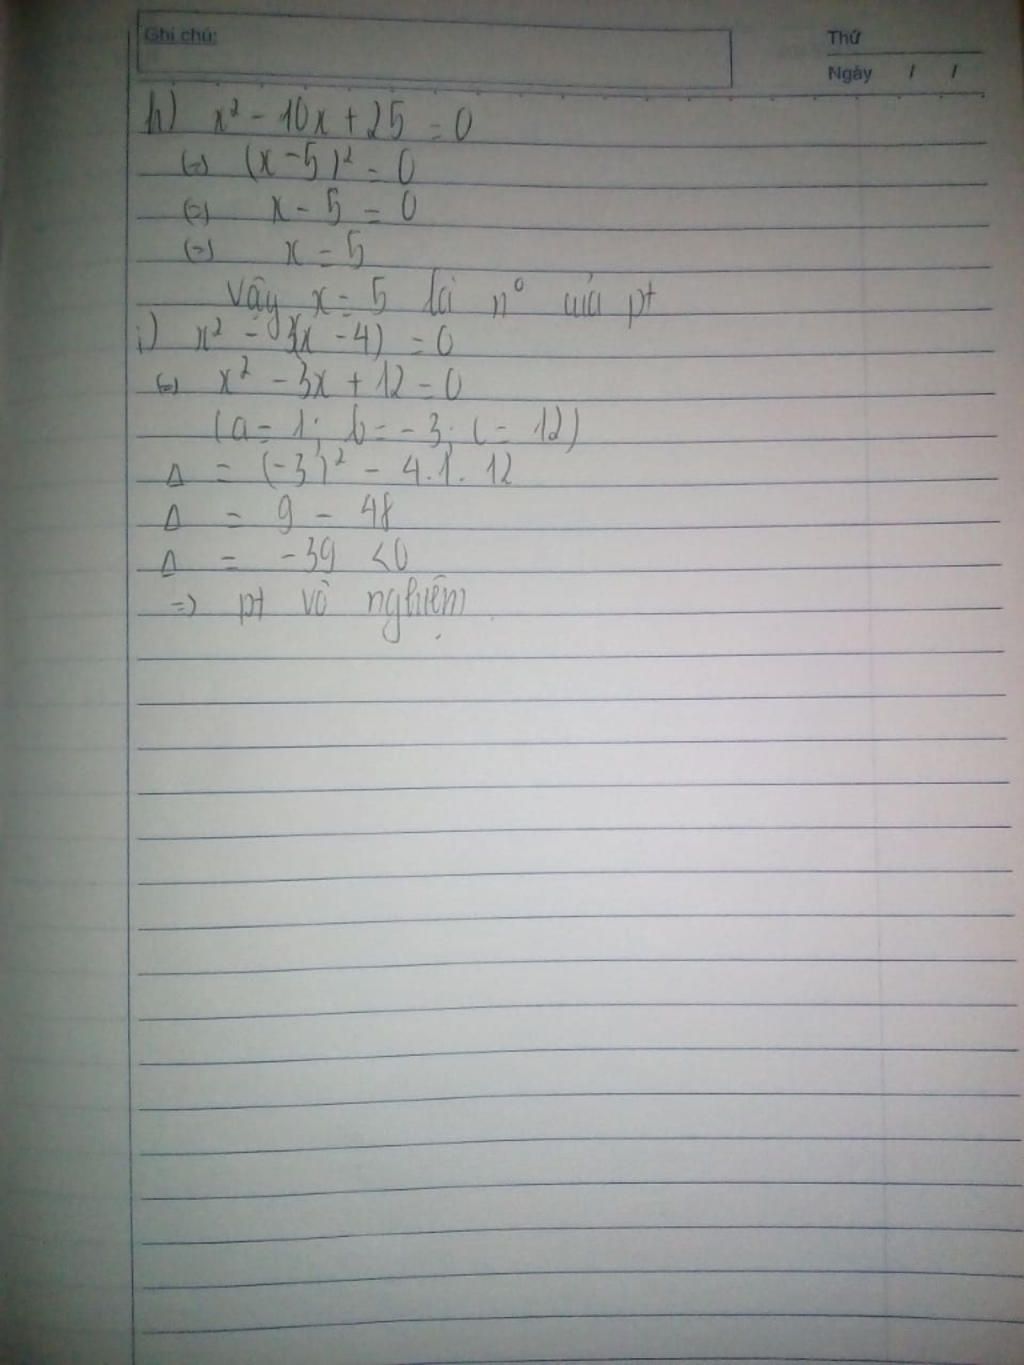 Ghi chú:
Thứ
Ngày / /
h) x² - 10x + 25 = 0
(=) (x - 5)² = 0
(=) x - 5 = 0
(=) x = 5
Vậy x = 5 là n° của pt
i) x² - 3(x - 4) = 0
(=) x² - 3x + 12 = 0
(a = 1; b = -3; c = 12)
Δ = (-3)² - 4.1.12
Δ = 9 - 48
Δ = -39 <0
=> pt vô nghiệm.